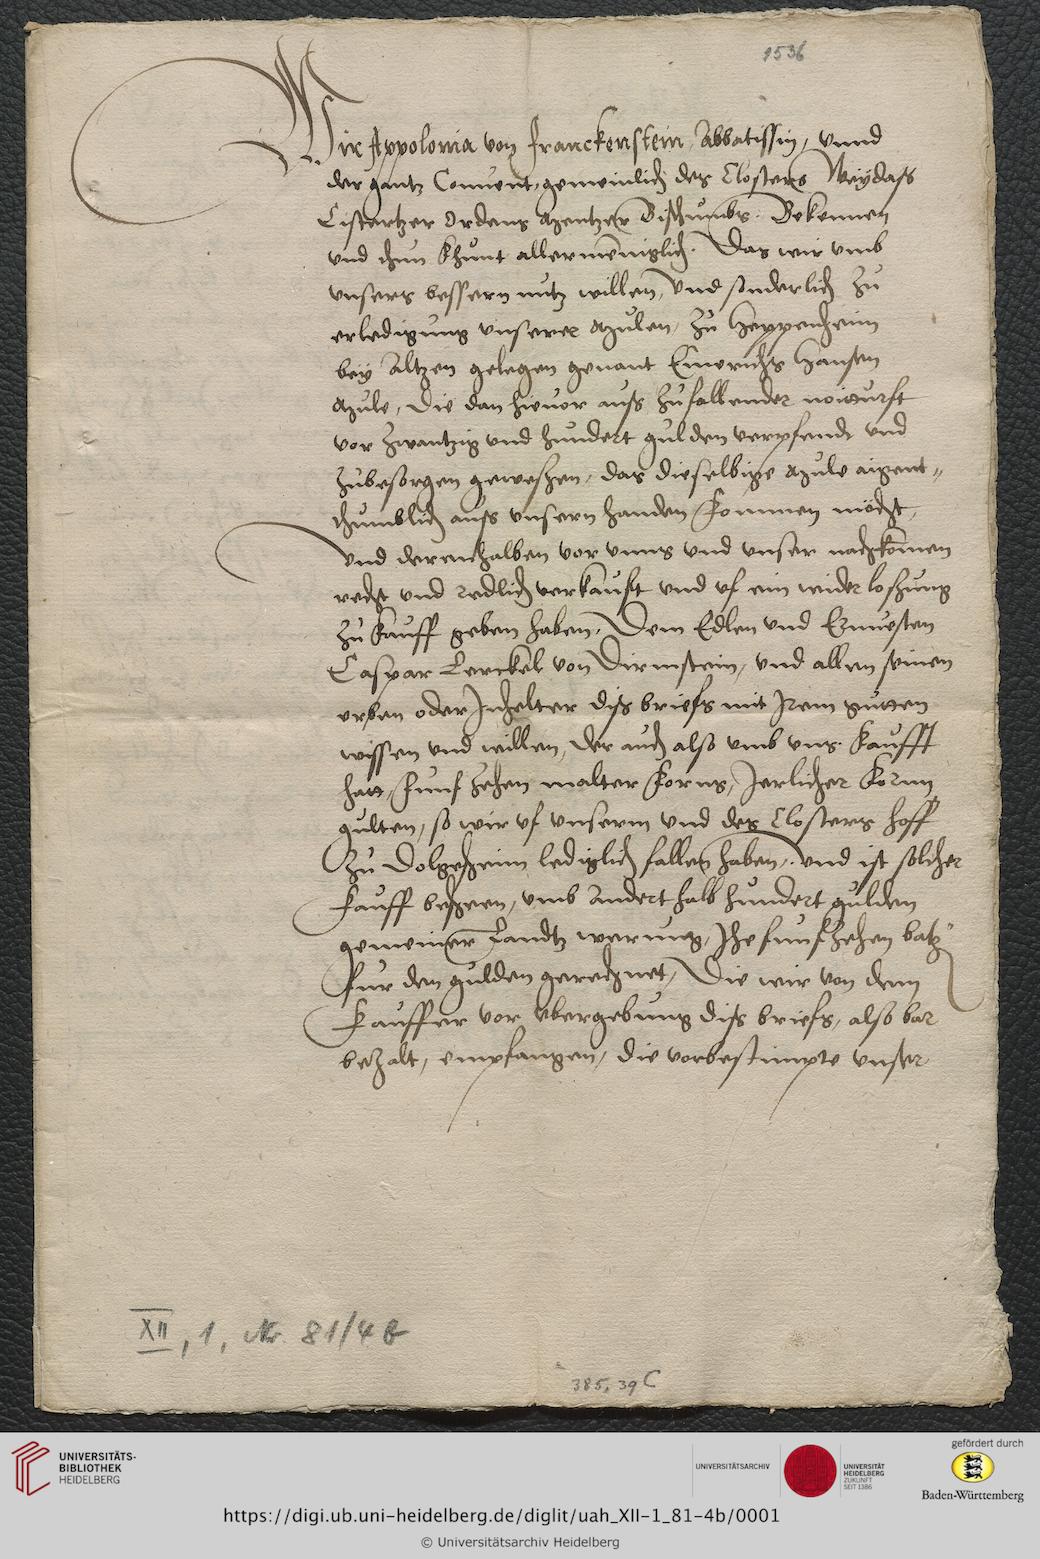 1536
Wir Appolonia von Franckenstein, Abbatissin, vnnd
der gantz Conuent, gemeinlich des Closters Weydass
Cistertzer Ordens Mentzer Bisthumbs. Bekennen
vnd thun khunt allermeniglich. Das wir vmb
vnsers bessern nutz willen, vnd sonderlich zu
erledigung vnserer Mulen, zu Heppenheim
bey Altzen gelegen genant Emerichs Hansen
Mule, die dan hieuor auss zufallender notturft
vor zwantzig vnd hundert gulden verpfendt vnd
zubesorgen geweszen, das dieselbige Mule aigent-
thumblich auss vnsern handen kommen möcht,
vnd derenhalben vor vnns vnd vnser nachkomen
recht vnd redlich verkaufft vnd vf ein wider loszung
zu kauff geben haben, Dem Edlen vnd Ernuesten
Caspar Lerckel von Dirmstein, vnd allen seinen
erben oder Inhelter diss briefs mit Irem gutten
wissen vnd willen, der auch also vmb vns kaufft
hatt, funfzehen malter korns, Jerlicher korn
gulten, so wir vf vnserm vnd des Closters hoff
zu Dolgesheim lediglich fallen haben, vnd ist solcher
kauff beschehen, vmb andert halb hundert gulden
gemeiner Landtz werung, Jhe funffzehen batz
fur den gulden gerechnet, Die wir von dem
kauffer vor vbergebung diss briefs, also bar
bezalt, empfangen, die vorbestimpte vnser
XII, 1, Nr. 81/4 b
385, 39 C
UNIVERSITÄTS-
BIBLIOTHEK
HEIDELBERG
UNIVERSITÄTSARCHIV
UNIVERSITÄT
HEIDELBERG
ZUKUNFT
SEIT 1386
gefördert durch
Baden-Württemberg
https://digi.ub.uni-heidelberg.de/diglit/uah_XII-1_81-4b/0001
© Universitätsarchiv Heidelberg